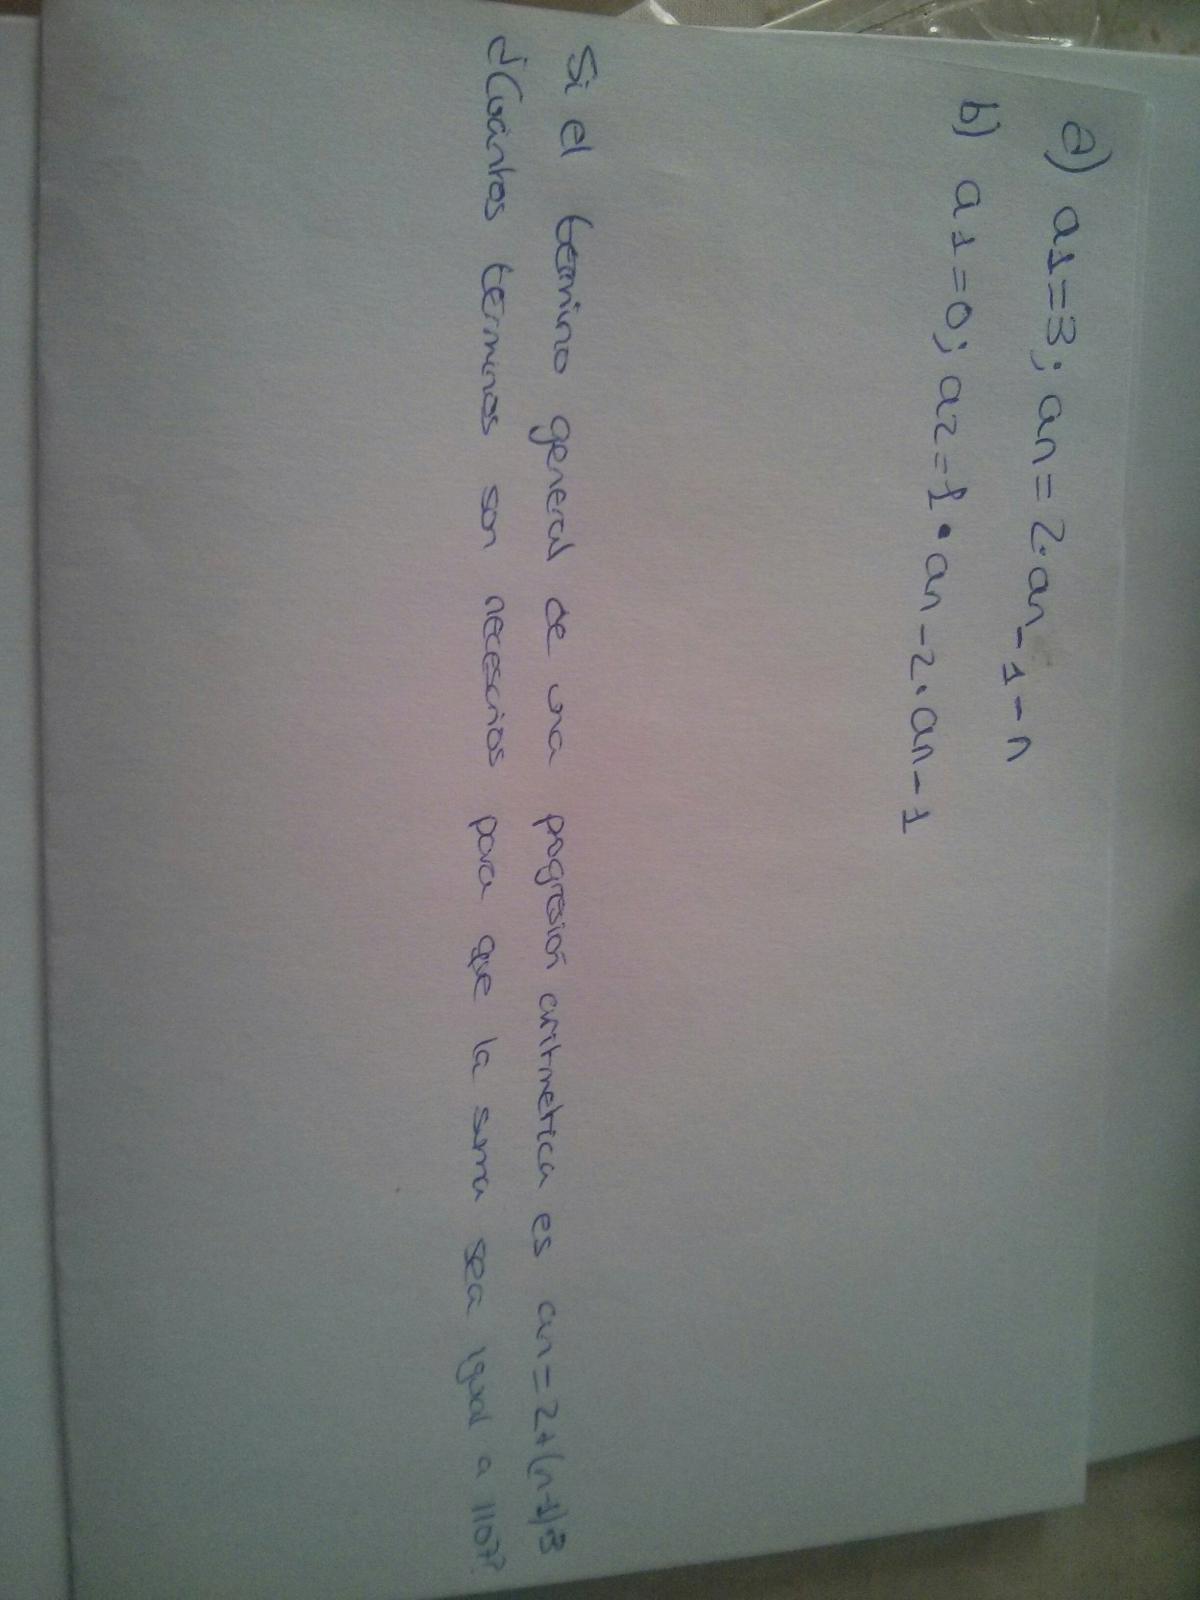 a) a1=3; an=2·an-1-n
b) a1=0; a2=1·an-2·an-1
Si el termino general de una progresión aritmetica es an=2+(n-1)3
¿Cuántos terminos son necesarios para que la suma sea igual a